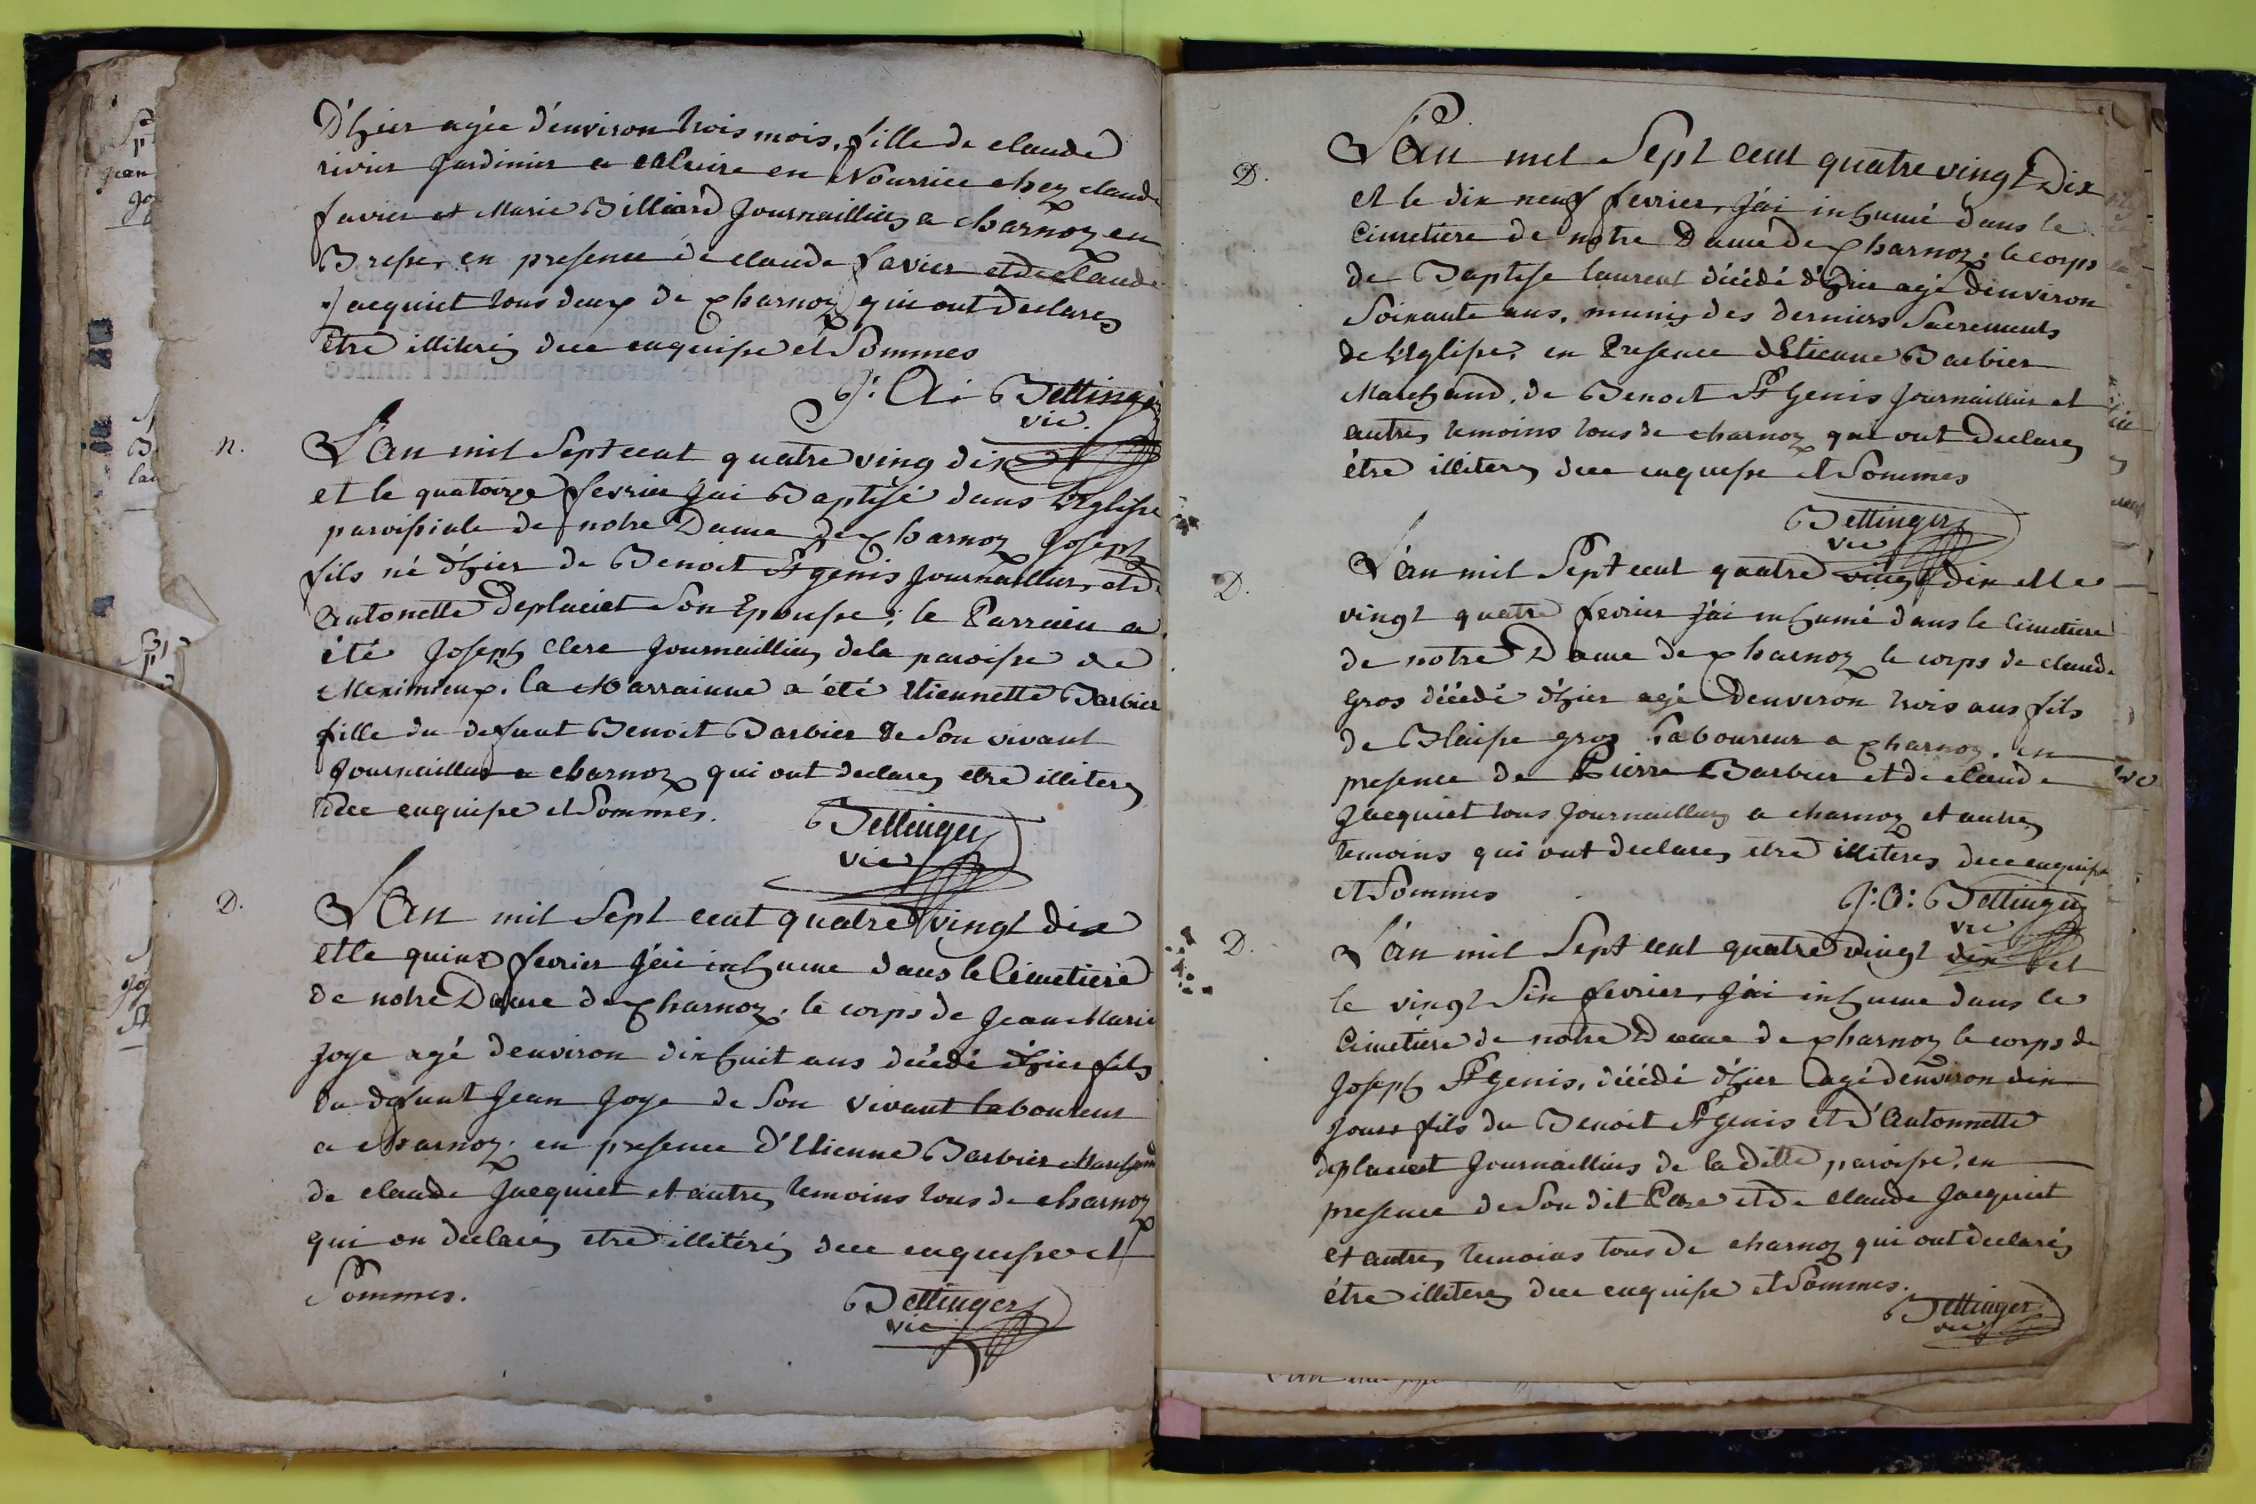 D'hier agée d'environ trois mois, fille de claude
rivier Jardinier a en Nourrice chez claude
favier et Marie Billiard Journaillier a charnoz en
Bresse, en presence de claude favier et de claude
Jacquiet tous deux de charnoz qui ont declarez
être illiterés dece enquise et Sommes
Bettinger
vic.
n.
L'an mil Sept cent quatre ving dix
et le quatorze fevrier jai Baptisé dans l'Eglise
paroissiale de notre Dame de charnoz Joseph
fils né d'hier de Benoit St genis Journaillier, et d
Antonette Deplaciet Son Epousse; le Parrain a
été Joseph Clere Journaillier dela paroisse de
Meximieux. la Marrainne a été Etiennette Barbier
fille du defunt Benoit Barbier de Son vivant
Journaillier a charnoz qui ont declarez etre illiterez
dece enquise et Sommes.
Bettinger
vic
D.
L'An mil Sept cent quatre vingt dix
et le quinze fevrier j'ai inhume dans le Cimetiere
de notre Dame de charnoz. le corps de Jean Marie
Joye agé d'environ dix huit ans décédé d'hier fils
du defunt Jean Joye de Son vivant laboureur
a charnoz. en presence d'Etienne Barbier Marchand
de claude Jacquiet et autres temoins tous de charnoz
qui on declarés etre illitérés dece enquise et
Sommes.
Bettinger
vic
D.
L'An mil Sept cent quatre vingt Dix
et le dix neuf fevrier, j'ai inhumé dans le
Cimetiere de notre Dame de charnoz. le corps
de Baptise laurent décédé d'hier agé d'environ
Soixante ans, munis des derniers Sacrements
de l'Eglise, en Presence d'Etienne Barbier
Marchand, de Benoit St Genis Journaillier et
autres temoins tous de charnoz qui ont declarez
être illiterez dece enquise et Sommes
Bettinger
vic
D.
L'an mil Sept cent quatre vingt dix et le
vingt quatre fevrier j'ai inhumé dans le Cimetiere
de notre Dame de charnoz le corps de claude
Gros décédé d'hier agé d'environ trois ans fils
de Blaise gros laboureur a charnoz. en
presence de Pierre Barbier et de claude
Jacquiet tous Journaillier a charnoz et autres
temoins qui ont declarez etre illiteres dece enquise
et Sommes
Bettinger
vic
D.
L'an mil Sept cent quatre vingt dix et
le vingt Six fevrier, j'ai inhume dans le
Cimetiere de notre Dame de charnoz le corps de
Joseph St Genis, décédé d'hier agé d'environ dix
jours fils du Benoit St Genis et d'Antonnette
deplaciet Journaillier de la ditte paroisse, en
presence de Son dit Pere et de claude Jacquiet
et autres temoins tous de charnoz qui ont declarés
être illiterez dece enquise et Sommes.
Bettinger
vic